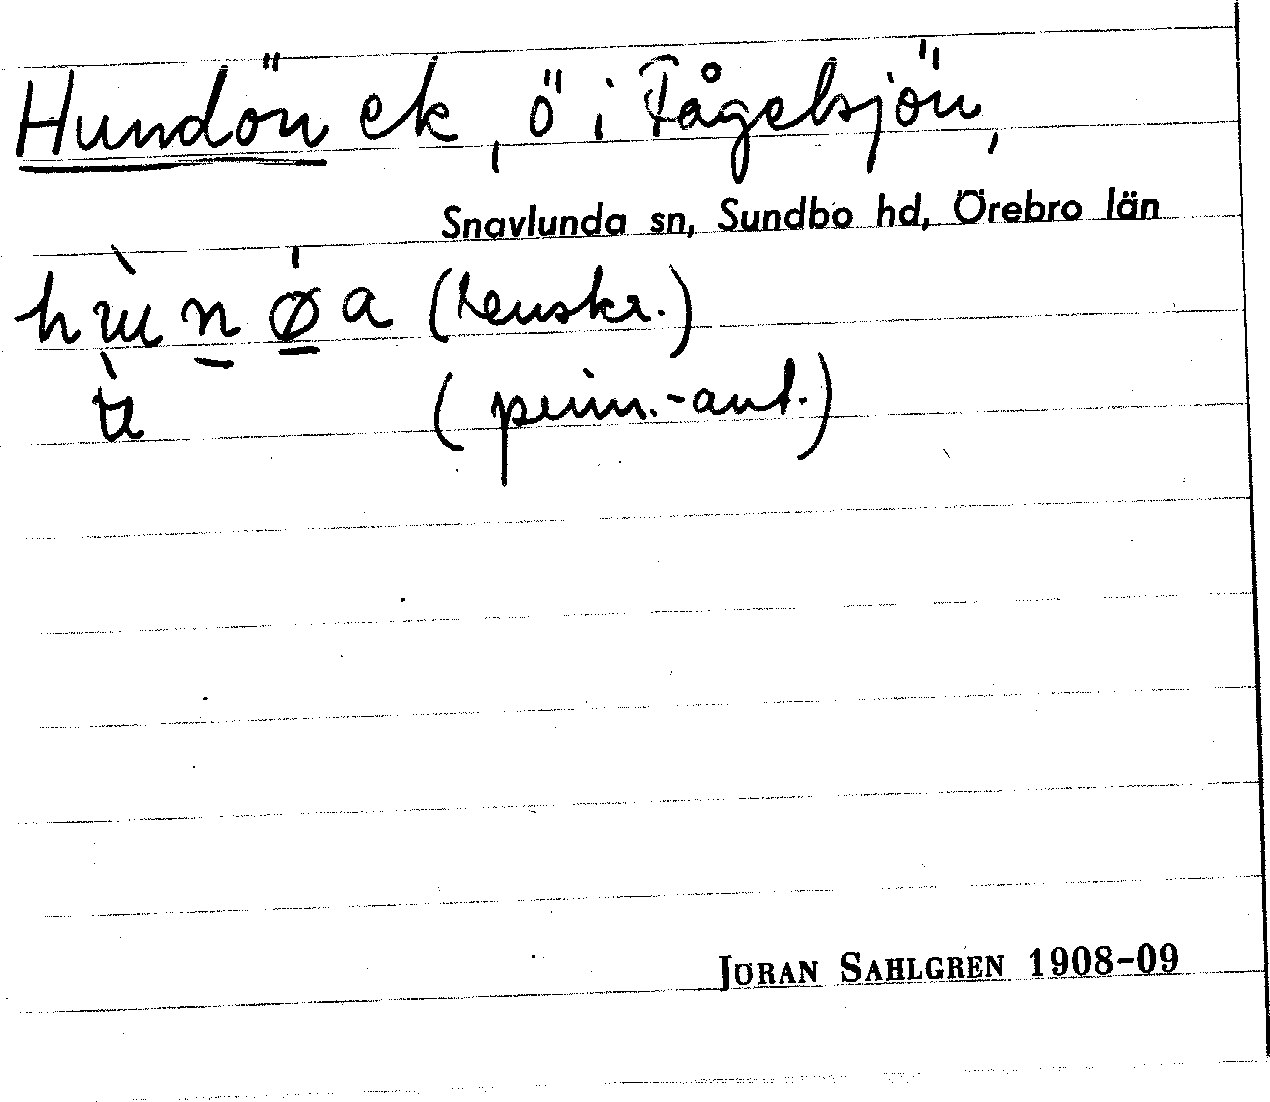 Hundön ek, ö i Fågelsjön,
Snavlunda sn, Sundbo hd, Örebro län
hɯ̀nǿa (renskr.)
(prim.-ant.)
JÖRAN SAHLGREN 1908-09